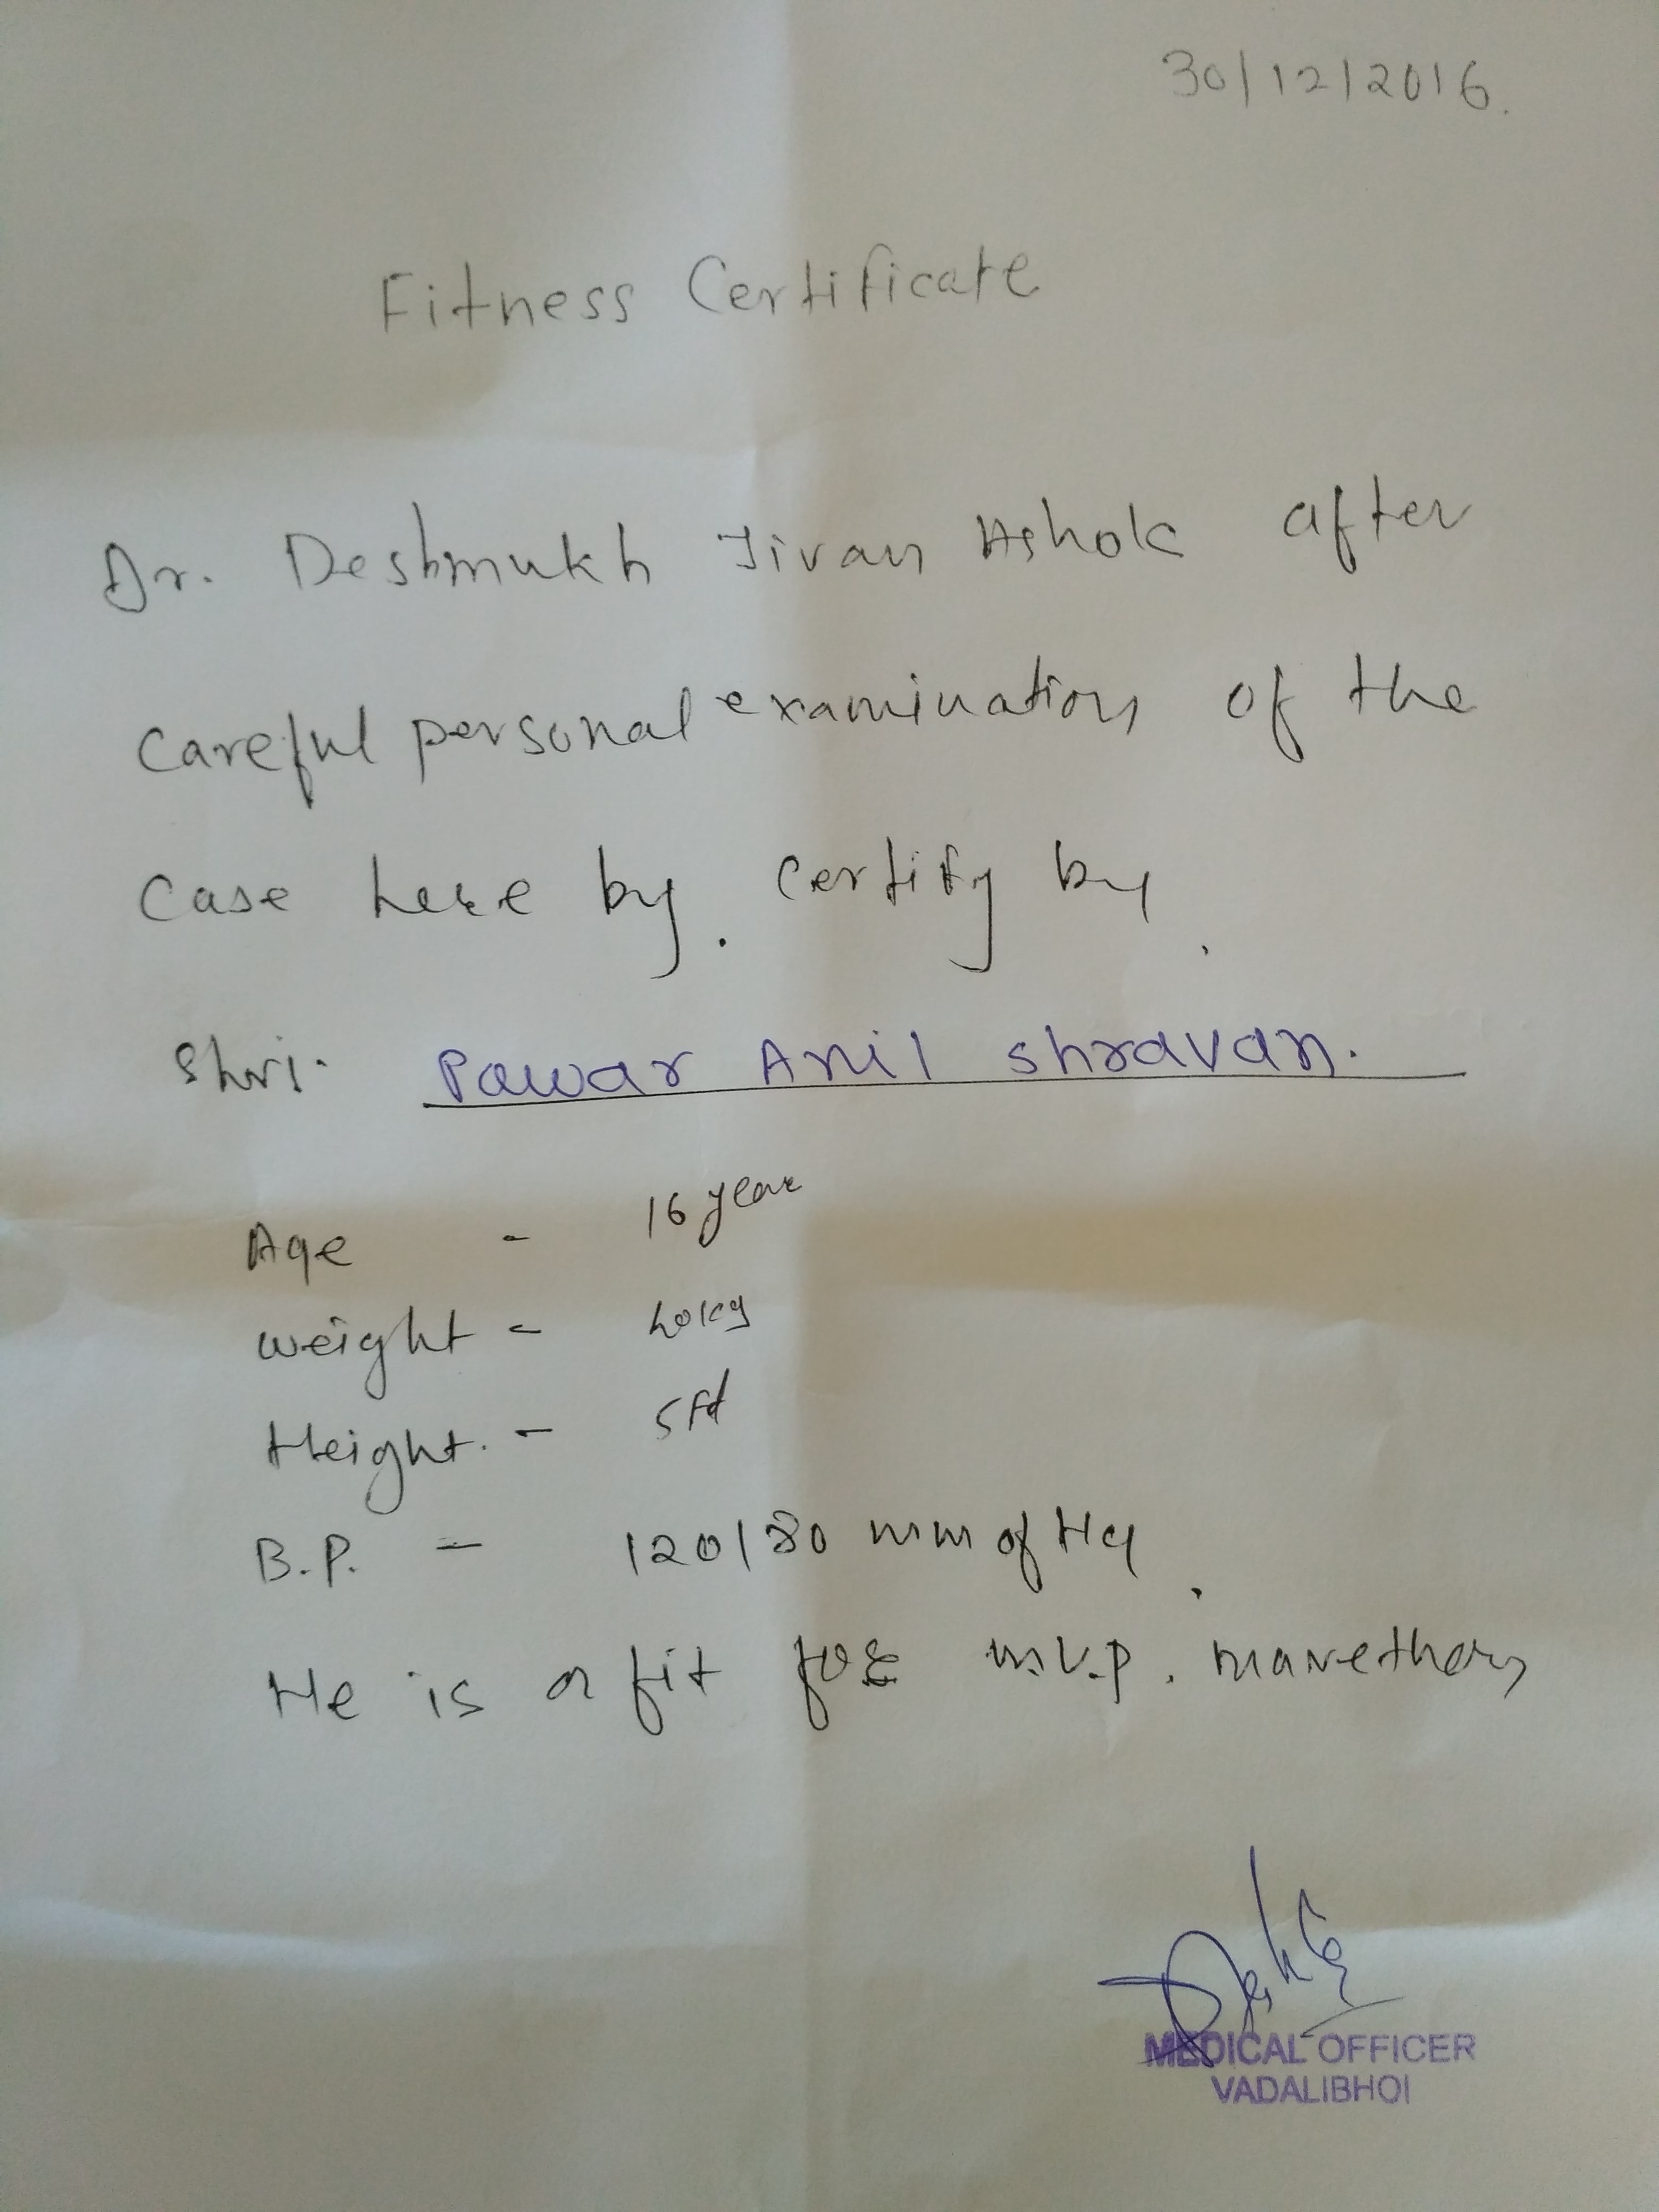 30/12/2016.
Fitness Certificate
Dr. Deshmukh Jivan Ashok after
careful personal examination of the
case here by. certify by.
Shri. Pawar Anil shravan.
Age - 16 year
weight - 40kg
Height. - 5ft
B.P. - 120/80 mm of Hg.
He is a fit for m.v.p. marethon
MEDICAL OFFICER
VADALIBHOI